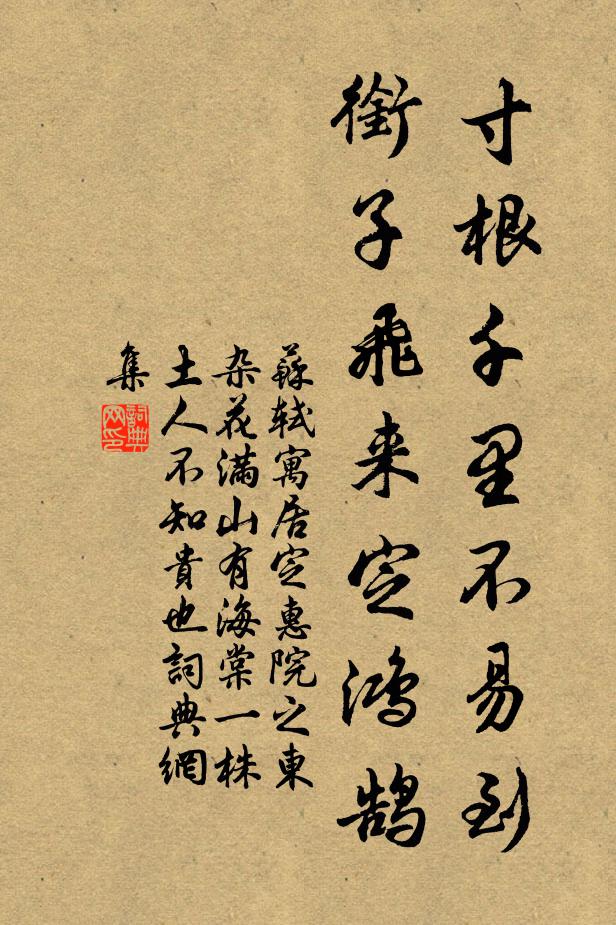 寸根千里不易到
銜子飛来定鴻鵠
蘇軾寓居定惠院之東
杂花滿山有海棠一株
土人不知貴也詞典網
集
詞典网印